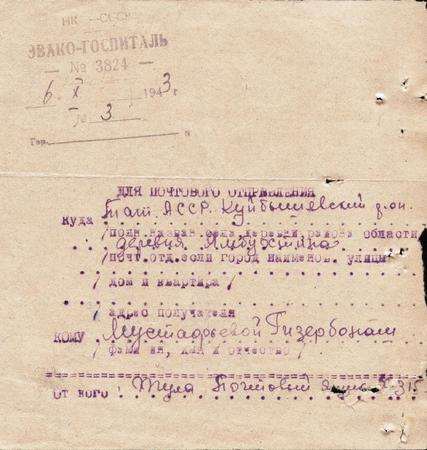 НК — СССР
ЭВАКО-ГОСПИТАЛЬ
— № 3824 —
6. X 1943 г
№ 3
Гор.
ДЛЯ ПОЧТОВОГО ОТПРАВЛЕНИЯ
куда Тат. АССР. Куйбышевский р-он.
/полн. назван. села деревни района области
деревня Ямбухтина
/почт.отд.если город наименов. улицы
/ дом и квартира/
/ адрес получателя
кому Мустафьевой Гизербонам
/фамилия, имя и отчество/
от кого Тула Почтовый ящик X-315